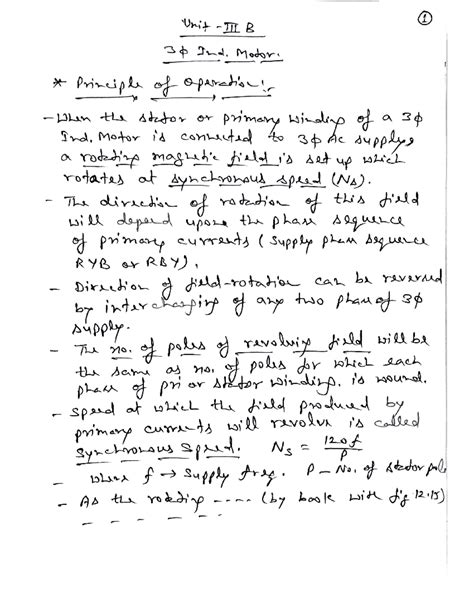 ①
Unit - III B
3φ Ind. Motor.
* Principle of operation:-
- When the stator or primary winding of a 3φ
Ind. Motor is connected to 3φ AC supply,
a rotating magnetic field is set up which
rotates at synchronous speed (Ns).
- The direction of rotation of this field
will depend upon the phase sequence
of primary currents (supply phase sequence
RYB or RBY).
- Direction of field-rotation can be reversed
by interchanging of any two phase of 3φ
supply.
- The no. of poles of revolving field will be
the same as no. of poles for which each
phase of pri or stator winding. is wound.
- Speed at which the field produced by
primary currents will revolve is called
Synchronous Speed. Ns = 120f/P
- where f → Supply freq. P - No. of stator pole
- As the rotating ---- (by book with fig 12.15)
- - - - - -